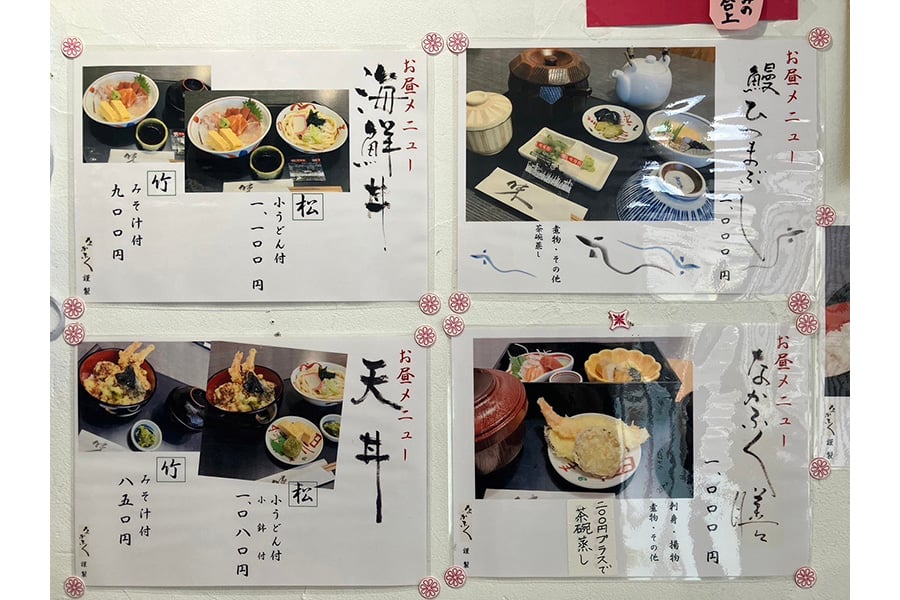 お昼メニュー
海鮮丼
松
小うどん付
一、一〇〇円
竹
みそ汁付
九〇〇円
なかふく 謹製
お昼メニュー
鰻ひつまぶし
〇〇〇円
煮物・その他
茶碗蒸し
味
お昼メニュー
天丼
松
小うどん付
小鉢付
一、〇八〇円
竹
みそ汁付
八五〇円
なかふく 謹製
お昼メニュー
なかふく膳
一、〇〇〇円
刺身・揚物
煮物・その他
二〇〇円プラスで
茶碗蒸し
なかふく 謹製
なかふく 謹製